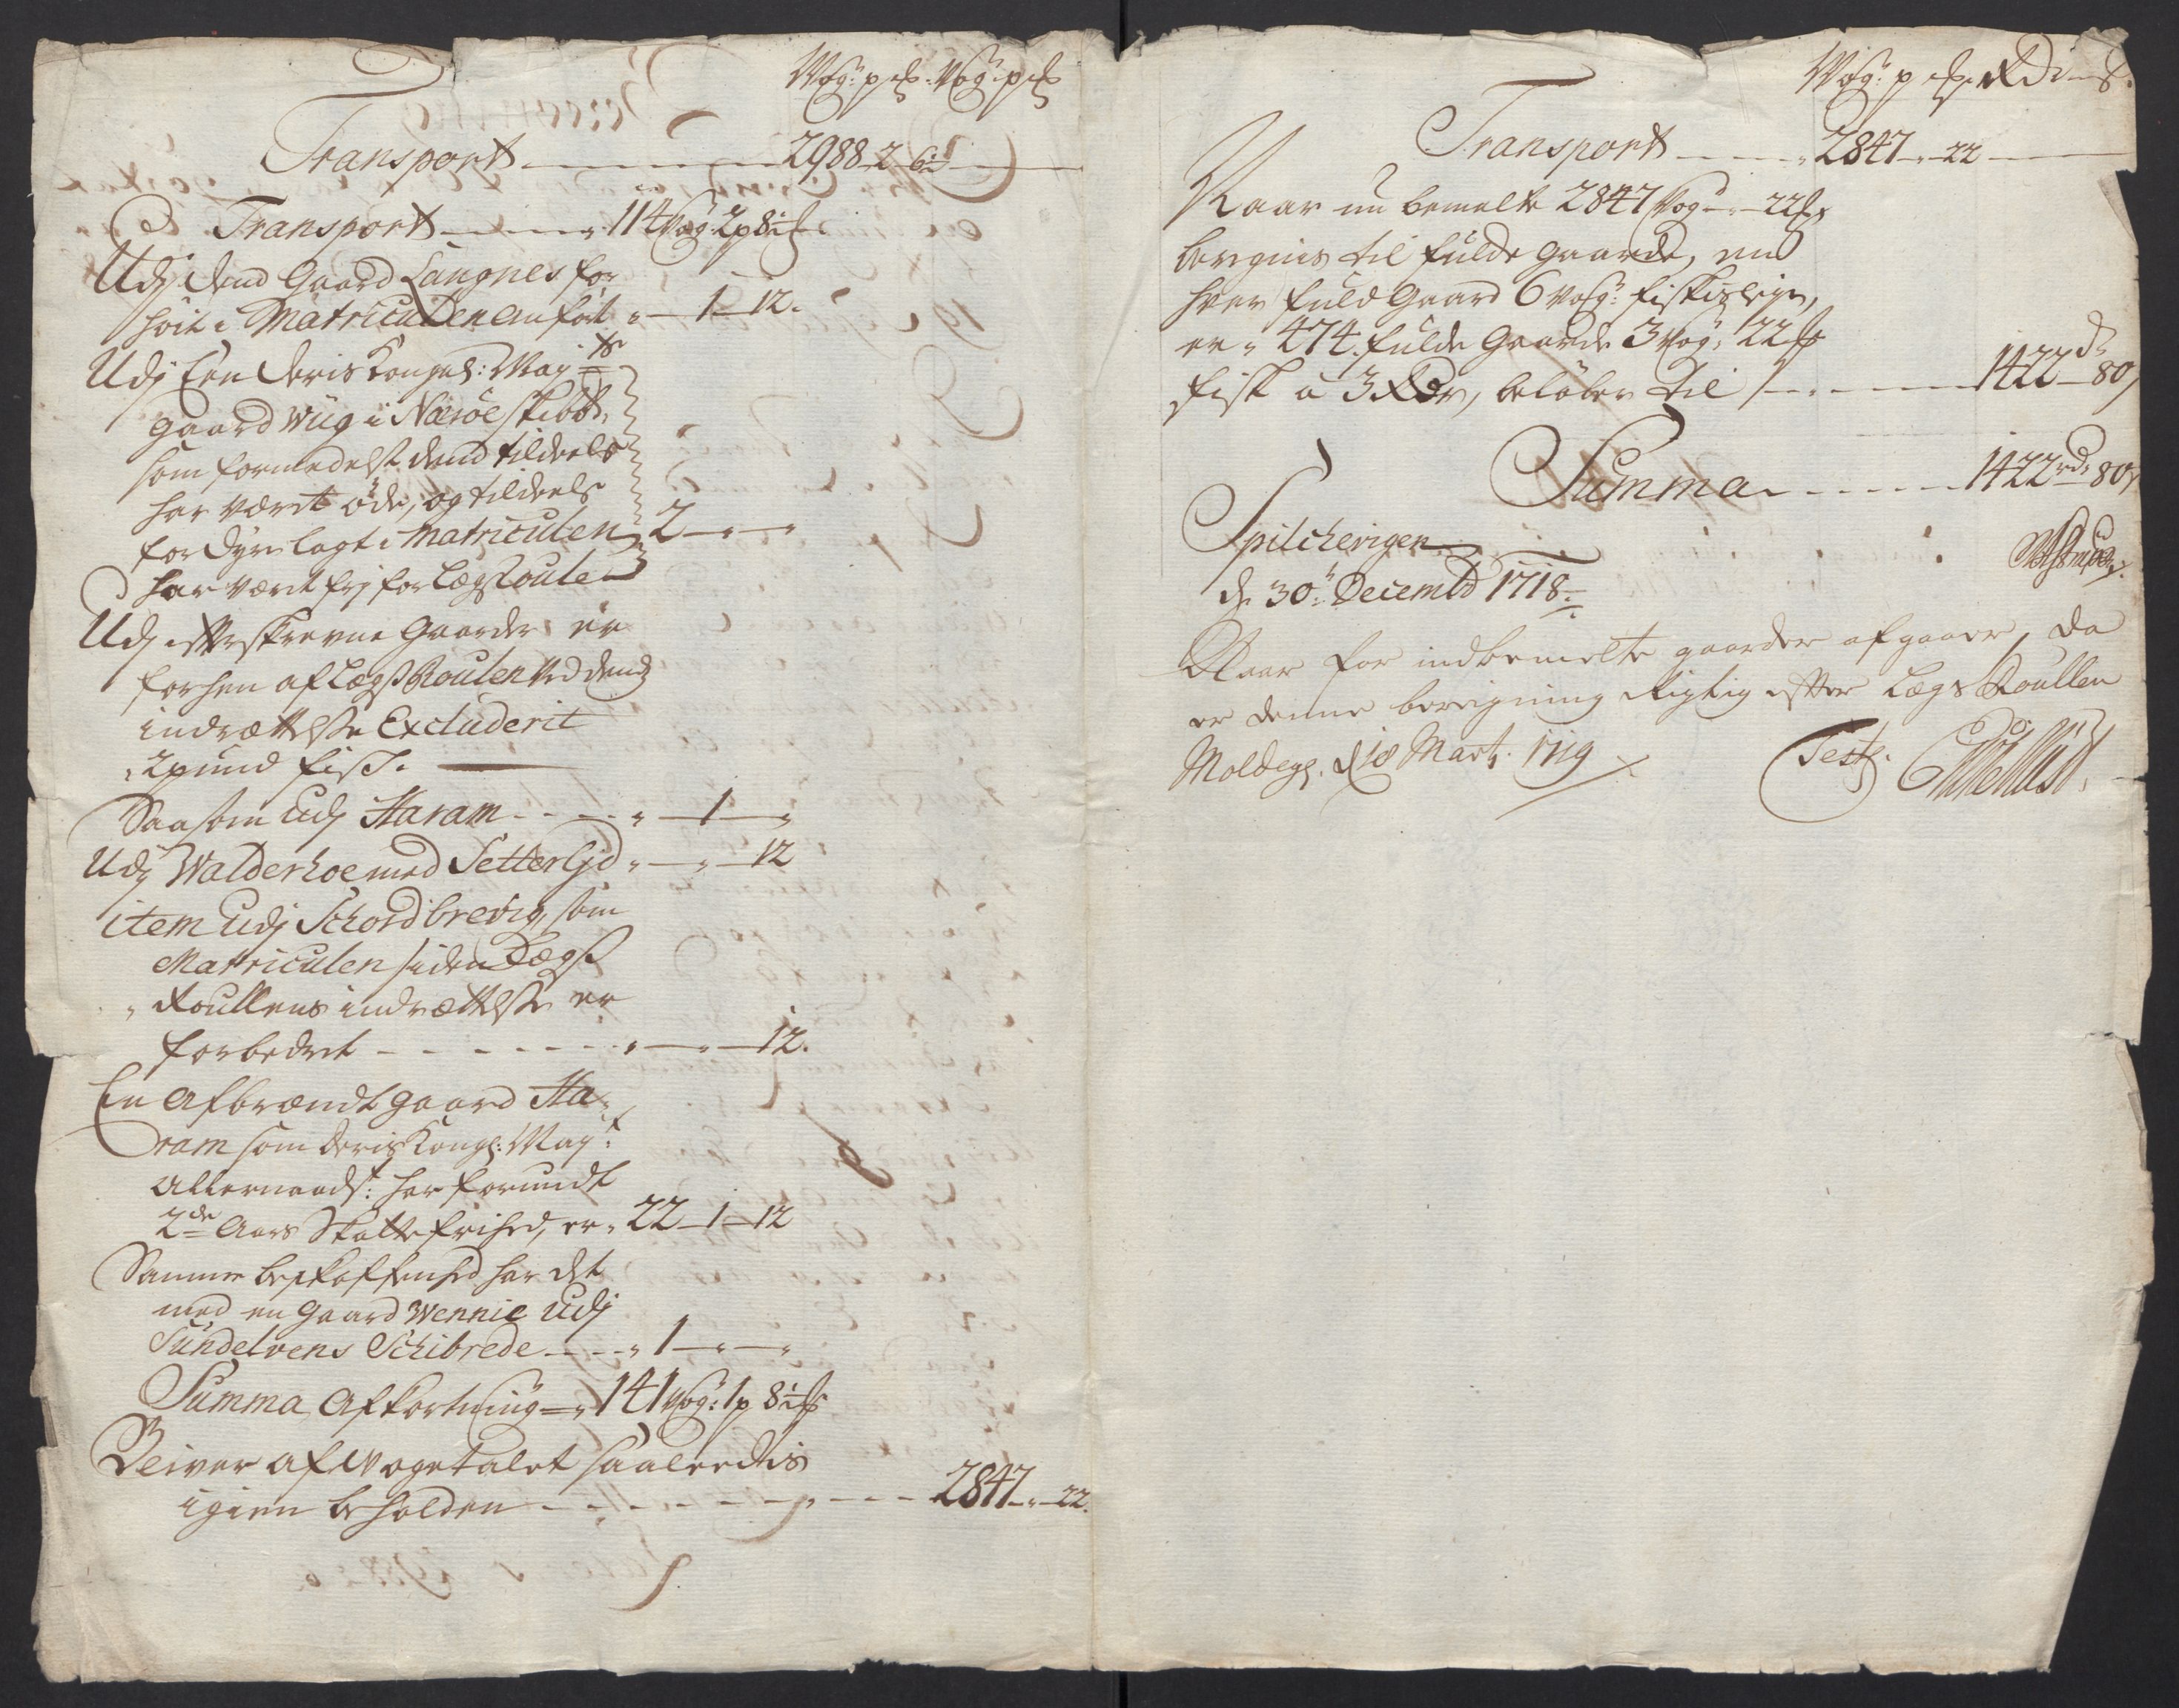 Wog: p ℔. Wog: p ℔
Transport 2988 2 6½
Transport 114 Wog 2p 8½ ℔
Udj dend Gaard Langnes for
höit i Matriculen anfört " 1 12.
Udj Een Deris Kongel: May:ts
gaard Wiig i Næröe skibbr.
som formedelst dend tildeels
har været öde, og tildeels
for dyre lagt i Matriculen 2 " "
har været frj for Lægs Roulen
Udj efterskrevne Gaarder er
forhen af Lægs Roulen ved dend
indrættelse Excluderit
2 pund fisk.
Saasom Udj Haram " 1 "
Udj Walderhoe med Setterljd " " 12
item Udj Schordbrevig, som
Matriculen siden Lægs
Roullens indrættelse er
forbedret " " 12.
En afbrændt gaard Ha-
ram som Deris Kongl: May:t
allernaadst: har forundt
2de Aars Skatte frihed, er " 22 1 12
Samme beskaffenhed har det
med en Gaard Wennie Udj
Sundelvens Schibrede " 1 " "
Summa Afkortning " 141 Wog: 1p 8½ ℔
Bliver af Wogetalet saaledis
igien beholden 2847 " 22.
Wog: p ℔. Rd s.
Transport 2847 " 22
Naar nu bemelte 2847 Wog " 22 ℔
beregnis til fulde gaarde, en
hver fuld Gaard 6 Wog: fiskis leje,
er " 474. fulde Gaarde 3 Wog: 22 ℔
fisk a 3 Rdr, belöber til 1422 d 80
Summa 1422 rd 80
Spilchevigen
d. 30: Decembr 1718
Naar for indbemelte gaarder afgaaer, da
er denne beregning Rigtig efter Lægs Roullen
Moldegr. d 18 Marty. 1719
Test.